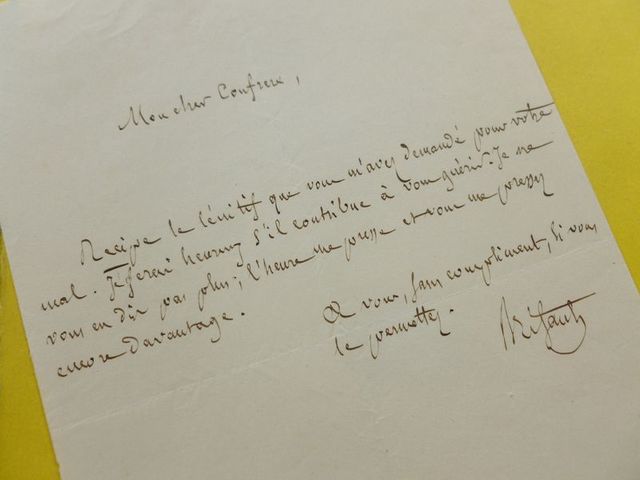 Mon cher Confrere,
Recipe le lénitif que vous m'avez demandé pour votre
mal. Je serai heureux s'il contribue à vous guérir. Je ne
vous en dis pas plus; l'heure me presse et vous me pressez
encore davantage.
A vous, sans compliment, si vous
le permettez.
Brifaut